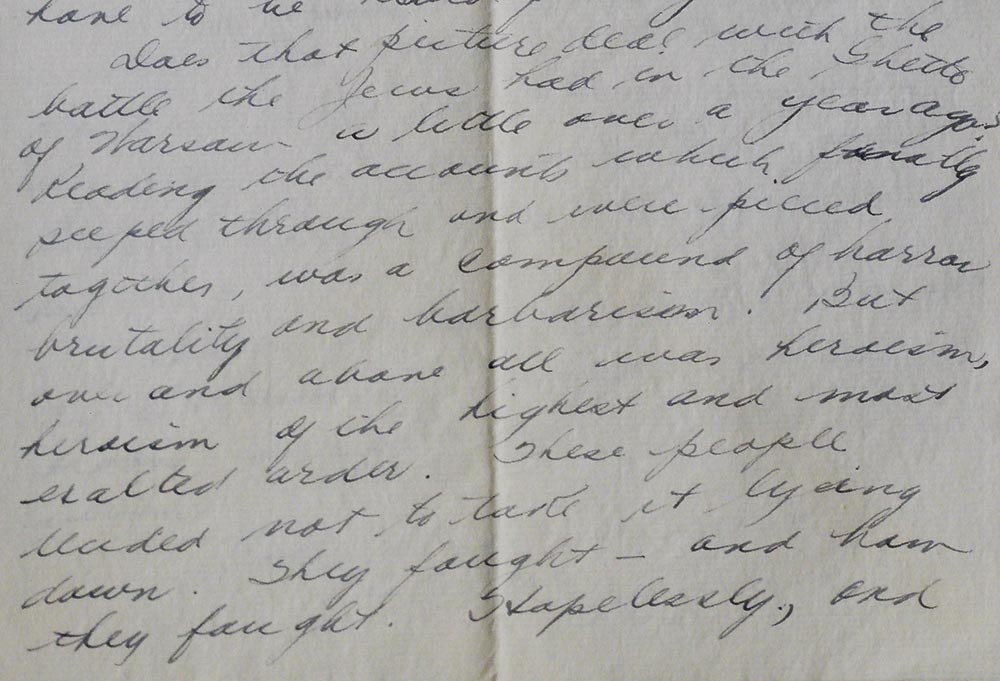 have to be
Does that picture deal with the
battle the Jews had in the Ghetto
of Warsaw a little over a year ago?
Reading the accounts which finally
seeped through and were pieced
together, was a compound of horror
brutality and barbarism. But
over and above all was heroism,
heroism of the highest and most
exalted order. These people
decided not to take it lying
down. They fought — and how
they fought. Hopelessly, and